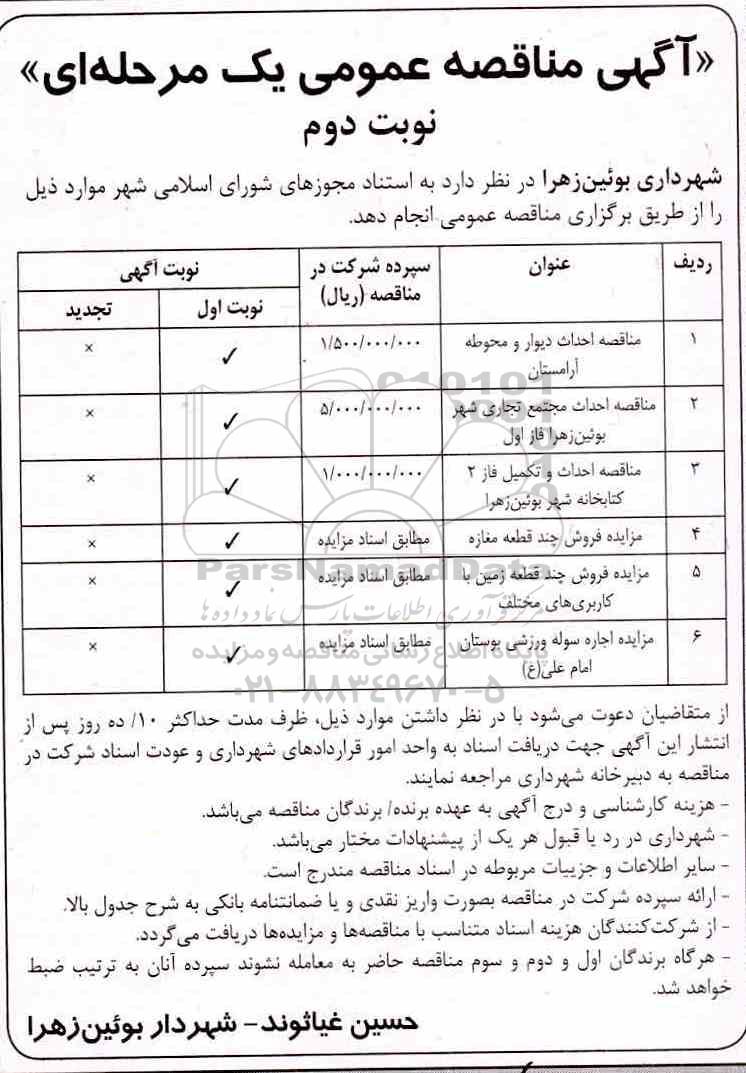 «آگهی مناقصه عمومی یک مرحله‌ای»
نوبت دوم
شهرداری بوئین‌زهرا در نظر دارد به استناد مجوزهای شورای اسلامی شهر موارد ذیل
را از طریق برگزاری مناقصه عمومی انجام دهد.
ردیف عنوان سپرده شرکت در مناقصه (ریال) نوبت آگهی
نوبت اول تجدید
۱ مناقصه احداث دیوار و محوطه آرامستان ۱/۵۰۰/۰۰۰/۰۰۰ ✓ ×
۲ مناقصه احداث مجتمع تجاری شهر بوئین‌زهرا فاز اول ۵/۰۰۰/۰۰۰/۰۰۰ ✓ ×
۳ مناقصه احداث و تکمیل فاز ۲ کتابخانه شهر بوئین‌زهرا ۱/۰۰۰/۰۰۰/۰۰۰ ✓ ×
۴ مزایده فروش چند قطعه مغازه مطابق اسناد مزایده ✓ ×
۵ مزایده فروش چند قطعه زمین با کاربری‌های مختلف مطابق اسناد مزایده ✓ ×
۶ مزایده اجاره سوله ورزشی بوستان امام علی(ع) مطابق اسناد مزایده ✓ ×
ParsNamadData
مرکز فرآوری اطلاعات پارس نماد داده‌ها
پایگاه اطلاع رسانی مناقصه و مزایده
۰۲۱-۸۸۳۴۹۶۷۰-۵
از متقاضیان دعوت می‌شود با در نظر داشتن موارد ذیل، ظرف مدت حداکثر ۱۰/ ده روز پس از
انتشار این آگهی جهت دریافت اسناد به واحد امور قراردادهای شهرداری و عودت اسناد شرکت در
مناقصه به دبیرخانه شهرداری مراجعه نمایند.
- هزینه کارشناسی و درج آگهی به عهده برنده/ برندگان مناقصه می‌باشد.
- شهرداری در رد یا قبول هر یک از پیشنهادات مختار می‌باشد.
- سایر اطلاعات و جزییات مربوطه در اسناد مناقصه مندرج است.
- ارائه سپرده شرکت در مناقصه بصورت واریز نقدی و یا ضمانتنامه بانکی به شرح جدول بالا.
- از شرکت‌کنندگان هزینه اسناد متناسب با مناقصه‌ها و مزایده‌ها دریافت می‌گردد.
- هرگاه برندگان اول و دوم و سوم مناقصه حاضر به معامله نشوند سپرده آنان به ترتیب ضبط
خواهد شد.
حسین غیاثوند- شهردار بوئین‌زهرا